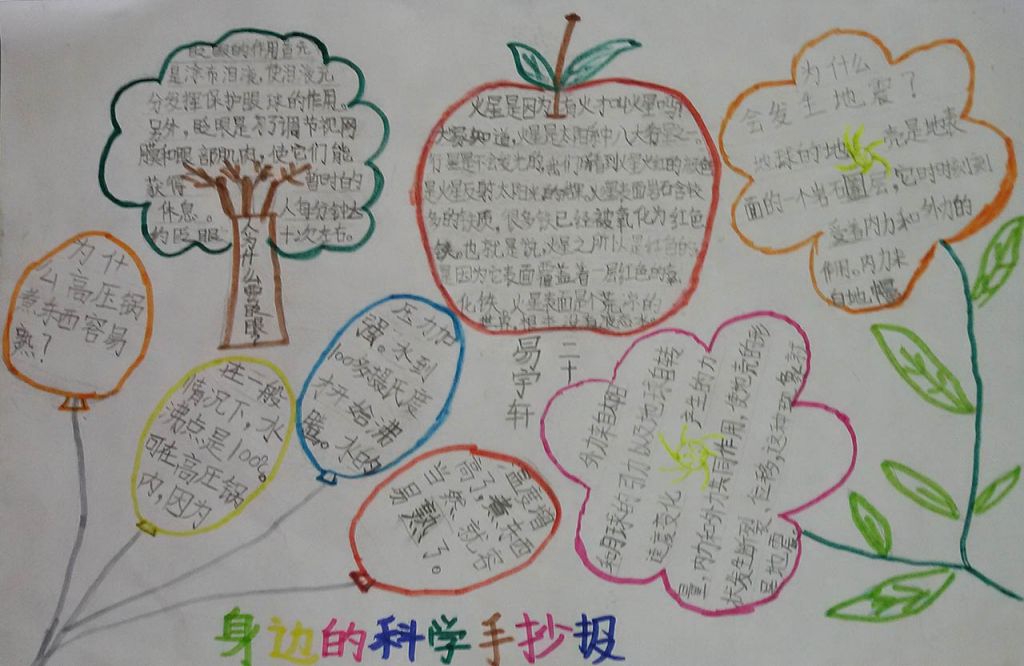 眨眼的作用首先
是涂布泪液,使泪液充
分发挥保护眼球的作用。
另外,眨眼是为了调节视网
膜和眼部肌肉,使它们能
获得 暂时的
休息。 人每分钟大
约眨眼 十次左右。
人为什么要眨眼?
火星是因为有火才叫火星吗?
大家知道,火星是太阳系中八大行星之一
行星是不会发光的,我们看到火星火红的颜色
是火星反射太阳光的结果。火星表面岩石含较
多的铁质,很多铁已经被氧化为红色
铁。也就是说,火星之所以是红色的
是因为它表面覆盖着一层红色的氧
化铁。火星表面是个荒凉的
世界,根本没有液态水
为什么
会发生地震?
地球的地 壳是地表
面的一个岩石圈层,它时时刻刻
受着内力和外力的
作用。内力来
自地幔
外力来自太阳
和月球的引力以及地球自转
速度变化 产生的力
量,内力和外力共同作用,使地壳的形
状发生断裂、位移,这种现象就
是地震。
为什
么高压锅
煮东西容易
熟?
在一般
情况下,水
沸点是100℃。
可在高压锅
内,因为
压力加
强。水到
100多摄氏度
才开始沸
腾。水的
温度增
高了,煮东西
当然就容
易熟了。
二十
易宇轩
身边的科学手抄报